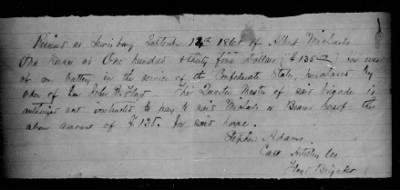 Received at Lewisburg September 12th 1861 of Albert Michaels
One horse at One hundred & thirty five Dollars ($135) for use
of my battery in the service of the Confederate States, purchased by
order of Gen John B. Floyd. The Quarter Master of said brigade is
authorized and instructed to pay to said Michaels or Bearer hereof the
above amount of $135. for said horse.
Stephen Adams,
Capt Artillery Co
Floyd's Brigade